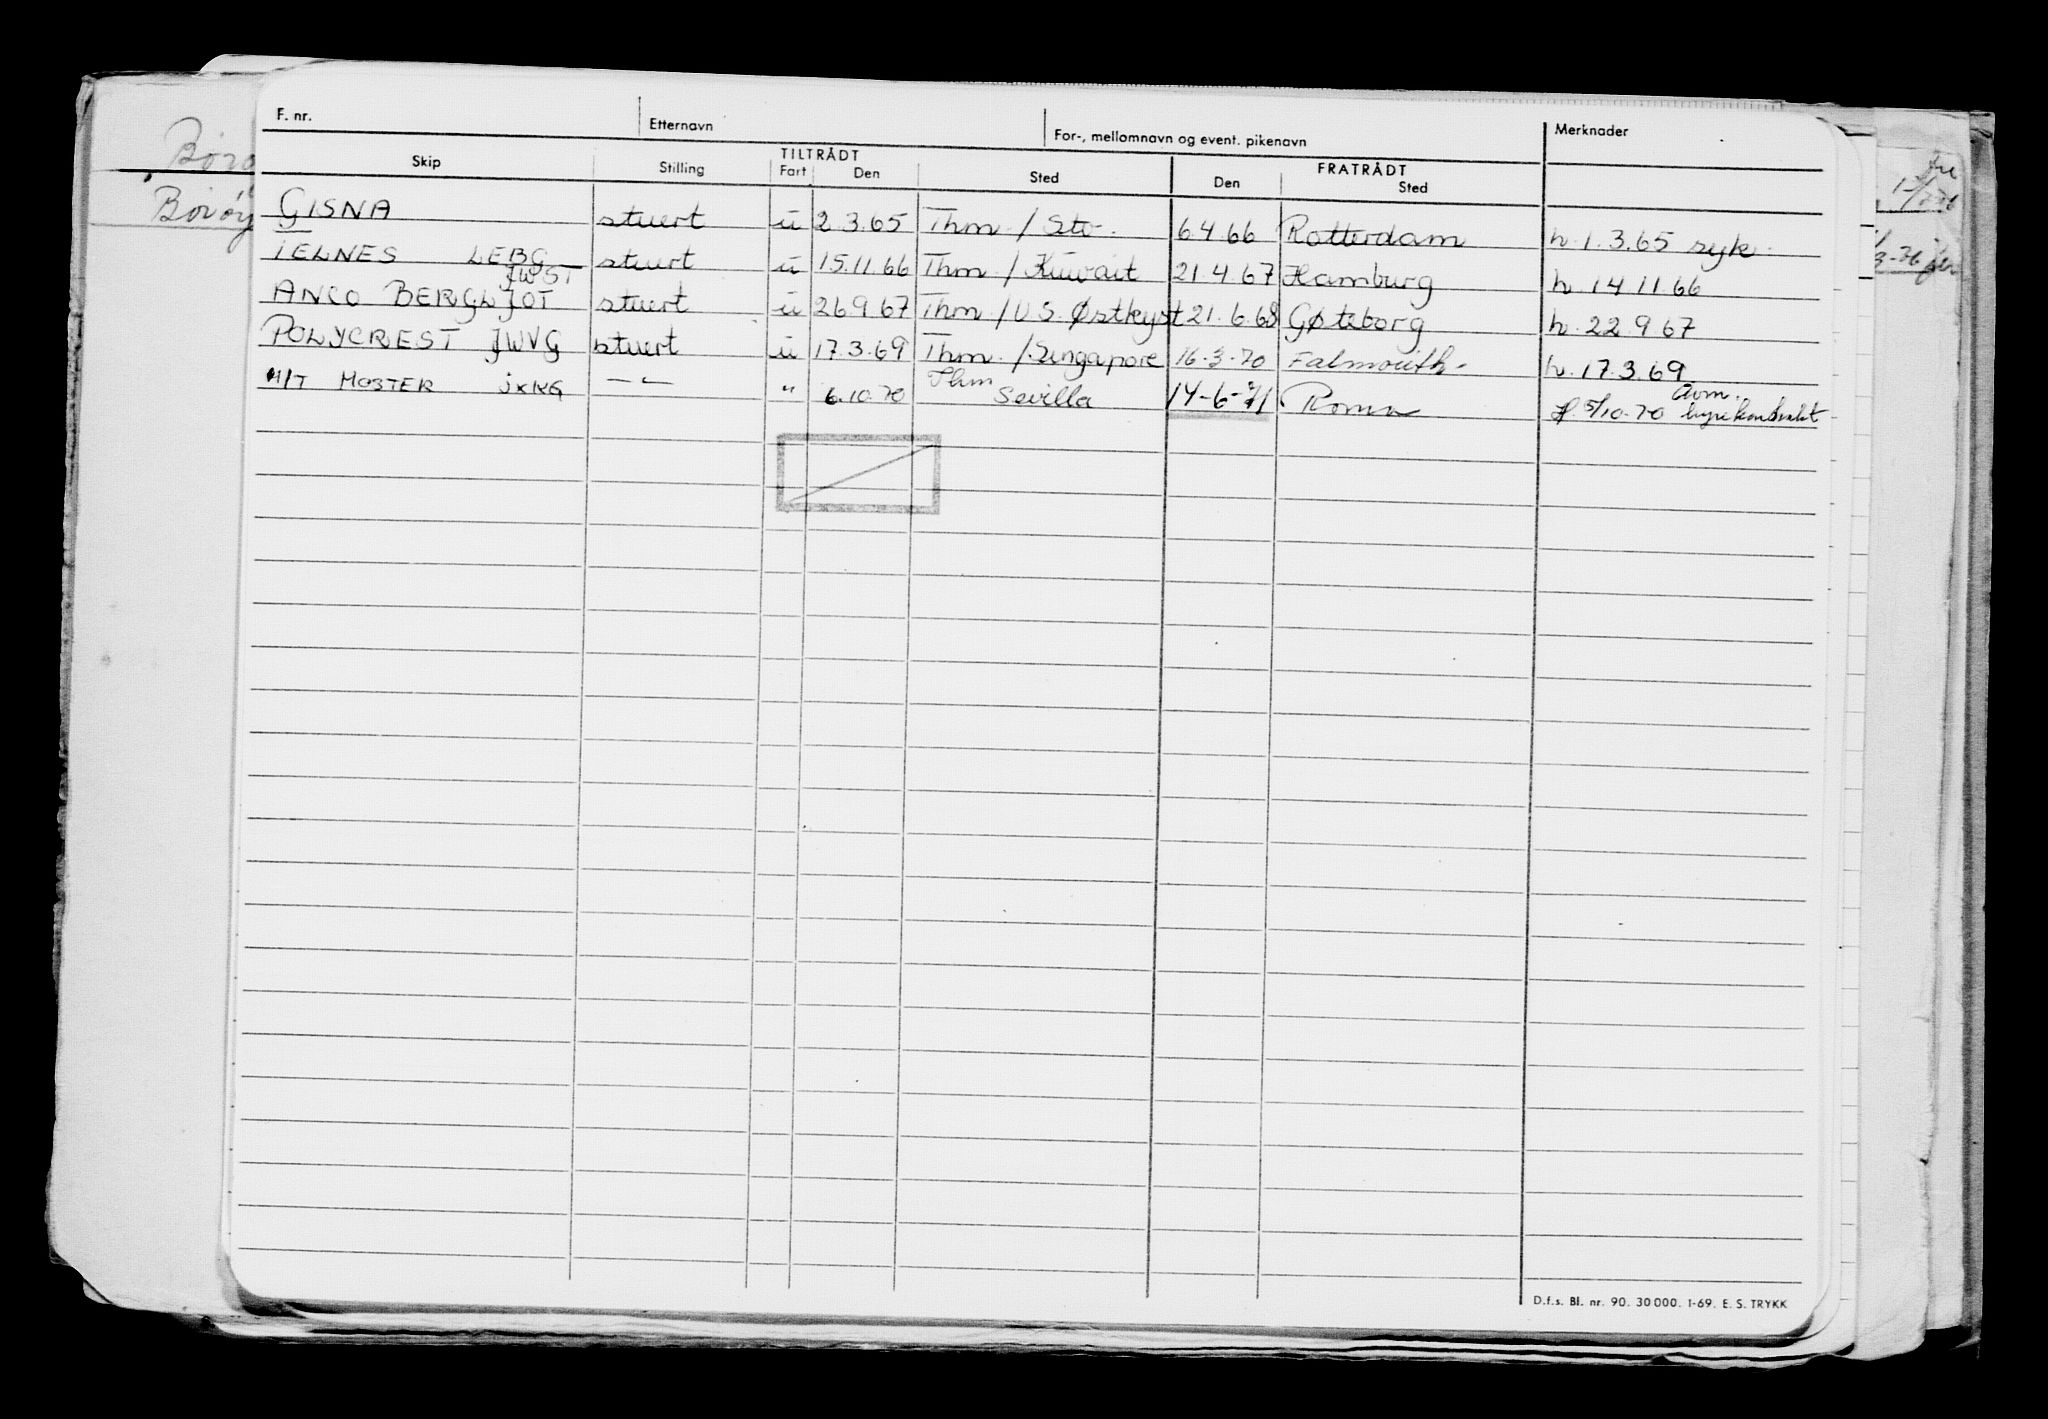 F. nr. Etternavn For-, mellomnavn og event. pikenavn Merknader
TILTRÅDT FRATRÅDT
Skip Stilling Fart Den Sted Den Sted
GISNA stuert u 2.3.65 Thm / Sto. 6.4.66 Rotterdam h. 1.3.65 syk.
IELNES LEBG stuert u 15.11.66 Thm / Kuwait 21.4.67 Hamburg h 14 11 66
JWST
ANCO BERGLJOT stuert u 26.9.67 Thm / U.S. Østkyst 21.6.68 Gøteborg h. 22 9 67
POLYCREST JWVG stuert u 17.3.69 Thm. / Singapore 16-3-70 Falmouth- h. 17.3.69
M/T MOSTER JXKG —"— " 6.10.70 Thm Sevilla 14-6-71 Roma H 5/10-70 Avm. hyrekontrakt
Børø
Borøy
D.f.s. Bl. nr. 90. 30 000. 1-69. E. S. TRYKK